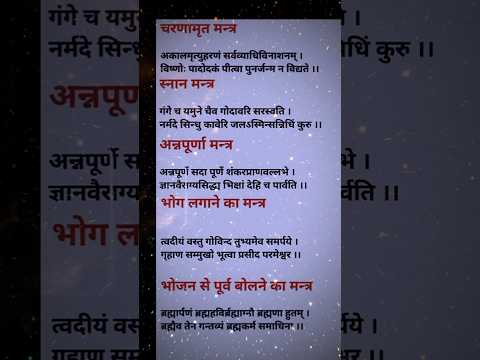 चरणामृत मन्त्र
अकालमृत्युहरणं सर्वव्याधिविनाशनम् ।
विष्णोः पादोदकं पीत्वा पुनर्जन्म न विद्यते ।।
स्नान मन्त्र
गंगे च यमुने चैव गोदावरि सरस्वति ।
नर्मदे सिन्धु कावेरि जलऽस्मिन्सन्निधिं कुरु ।।
अन्नपूर्णा मन्त्र
अन्नपूर्णे सदा पूर्णे शंकरप्राणवल्लभे ।
ज्ञानवैराग्यसिद्ध्य भिक्षां देहि च पार्वति ।।
भोग लगाने का मन्त्र
त्वदीयं वस्तु गोविन्द तुभ्यमेव समर्पये ।
गृहाण सम्मुखो भूत्वा प्रसीद परमेश्वर ।।
भोजन से पूर्व बोलने का मन्त्र
ब्रह्मार्पणं ब्रह्महविर्ब्रह्माग्नौ ब्रह्मणा हुतम् ।
ब्रह्मैव तेन गन्तव्यं ब्रह्मकर्म ।।